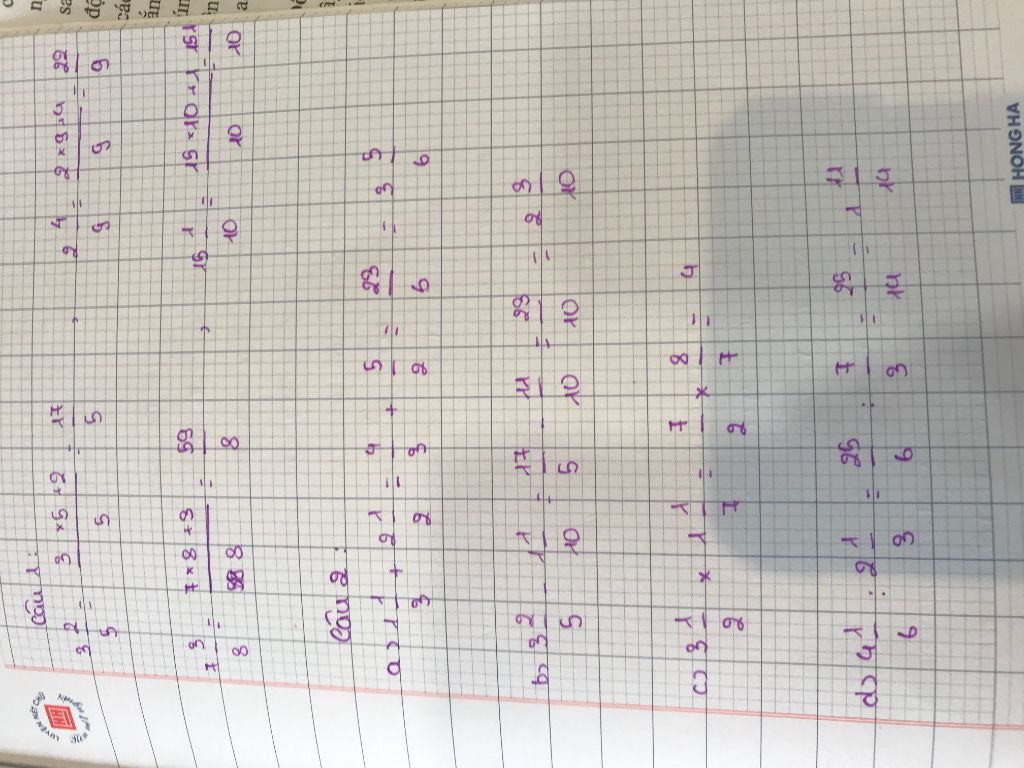 LUYỆN NÉT CHỮ
Rèn nết người
Câu 1:
3 2/5 = (3 × 5 + 2)/5 = 17/5 , 2 4/9 = (2 × 9 + 4)/9 = 22/9
7 3/8 = (7 × 8 + 3)/8 = 59/8 , 15 1/10 = (15 × 10 + 1)/10 = 151/10
Câu 2:
a) 1 1/3 + 2 1/2 = 4/3 + 5/2 = 23/6 = 3 5/6
b) 3 2/5 - 1 1/10 = 17/5 - 11/10 = 23/10 = 2 3/10
c) 3 1/2 × 1 1/7 = 7/2 × 8/7 = 4
d) 4 1/6 : 2 1/3 = 25/6 : 7/3 = 25/14 = 1 11/14
HONG HA